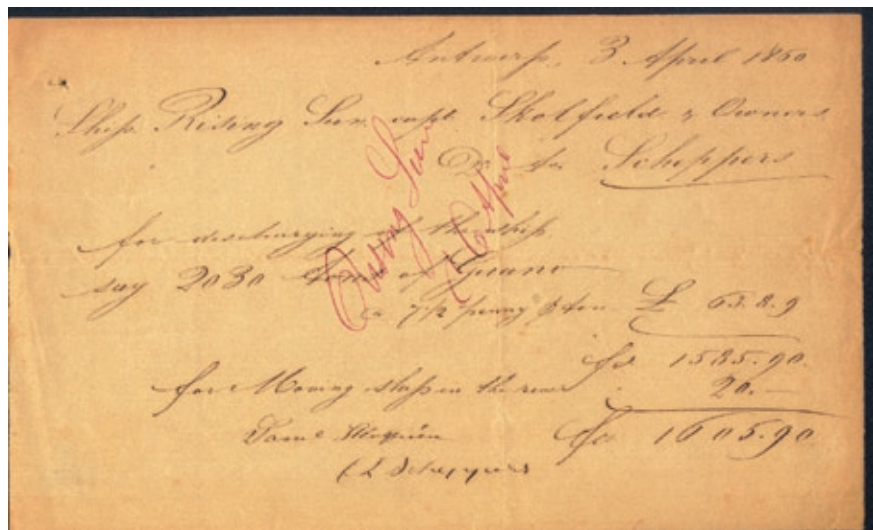 Antwerp, 3 April 1860
Ship Rising Sun capt. Skolfield & Owners
Dr. to Scheppers
for discharging of the ship
say 2030 tons of Guano
a 7 1/2 penny p ton £ 63.8.9
fs 1585.90.
for Moving ship in the river 20.—
fs 1605.90
Scheppers
Rising Sun
6 April